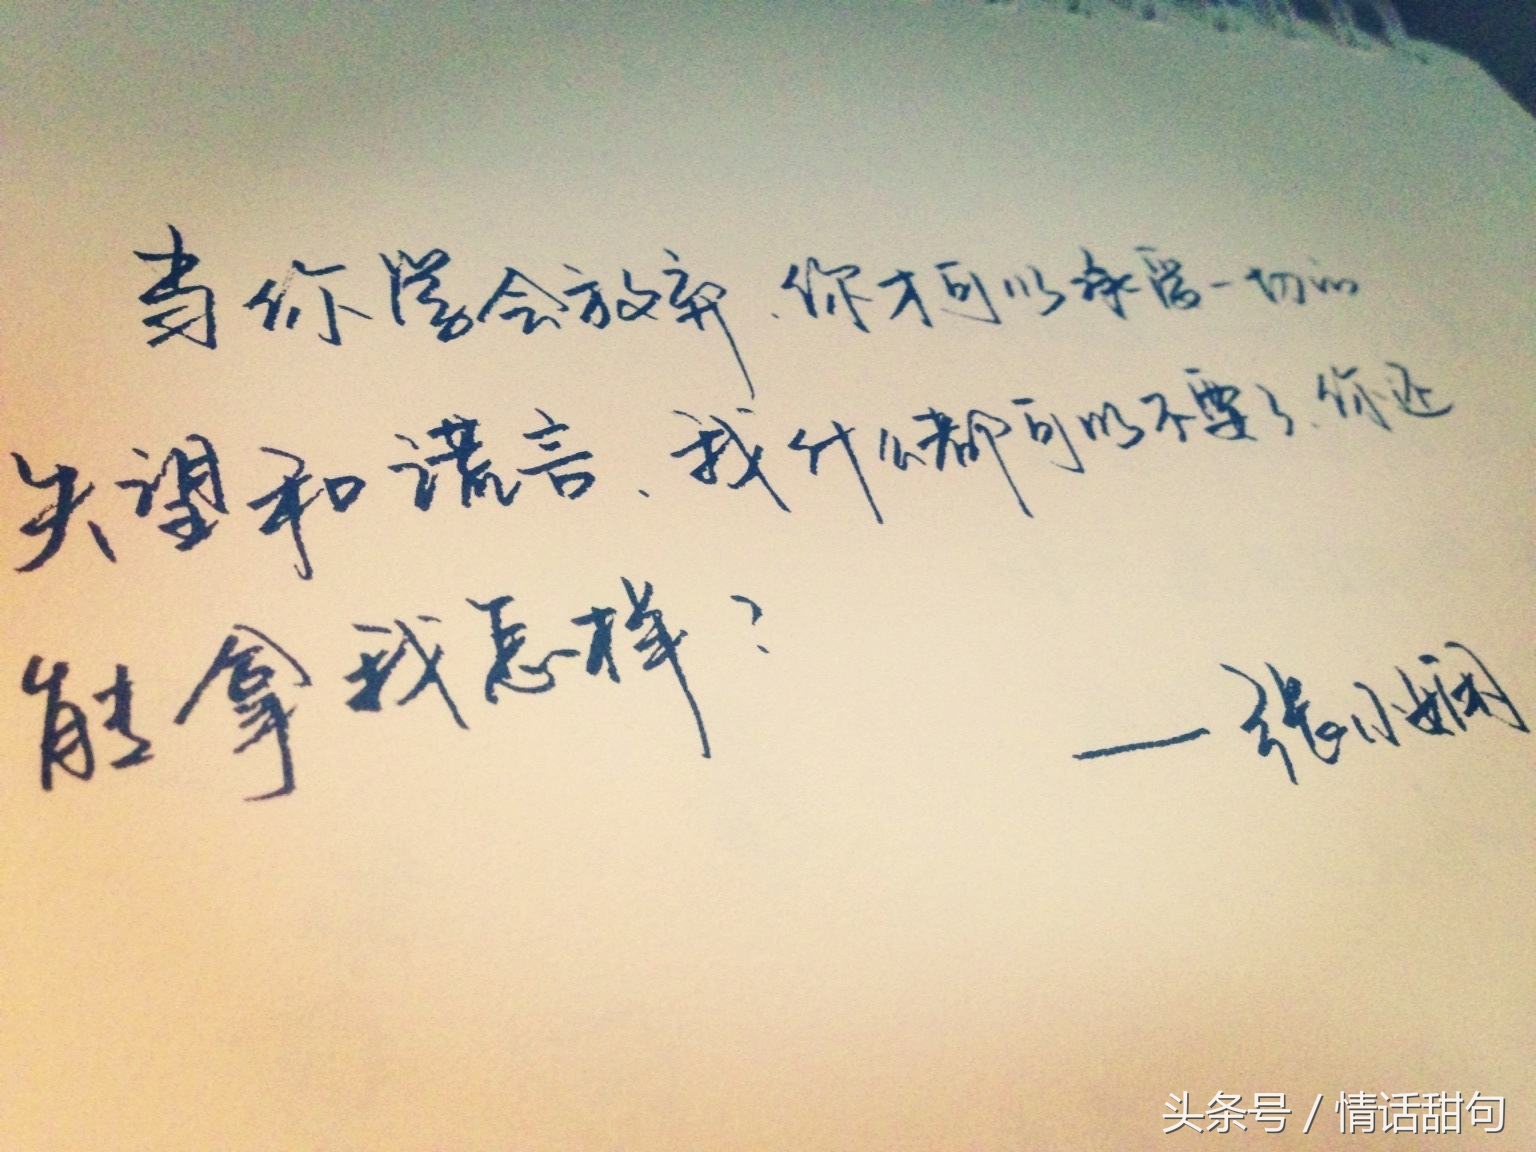 当你学会放弃、你才可以承受一切的
失望和谎言、我什么都可以不要了、你还
能拿我怎样？
—张小娴
头条号 / 情话甜句